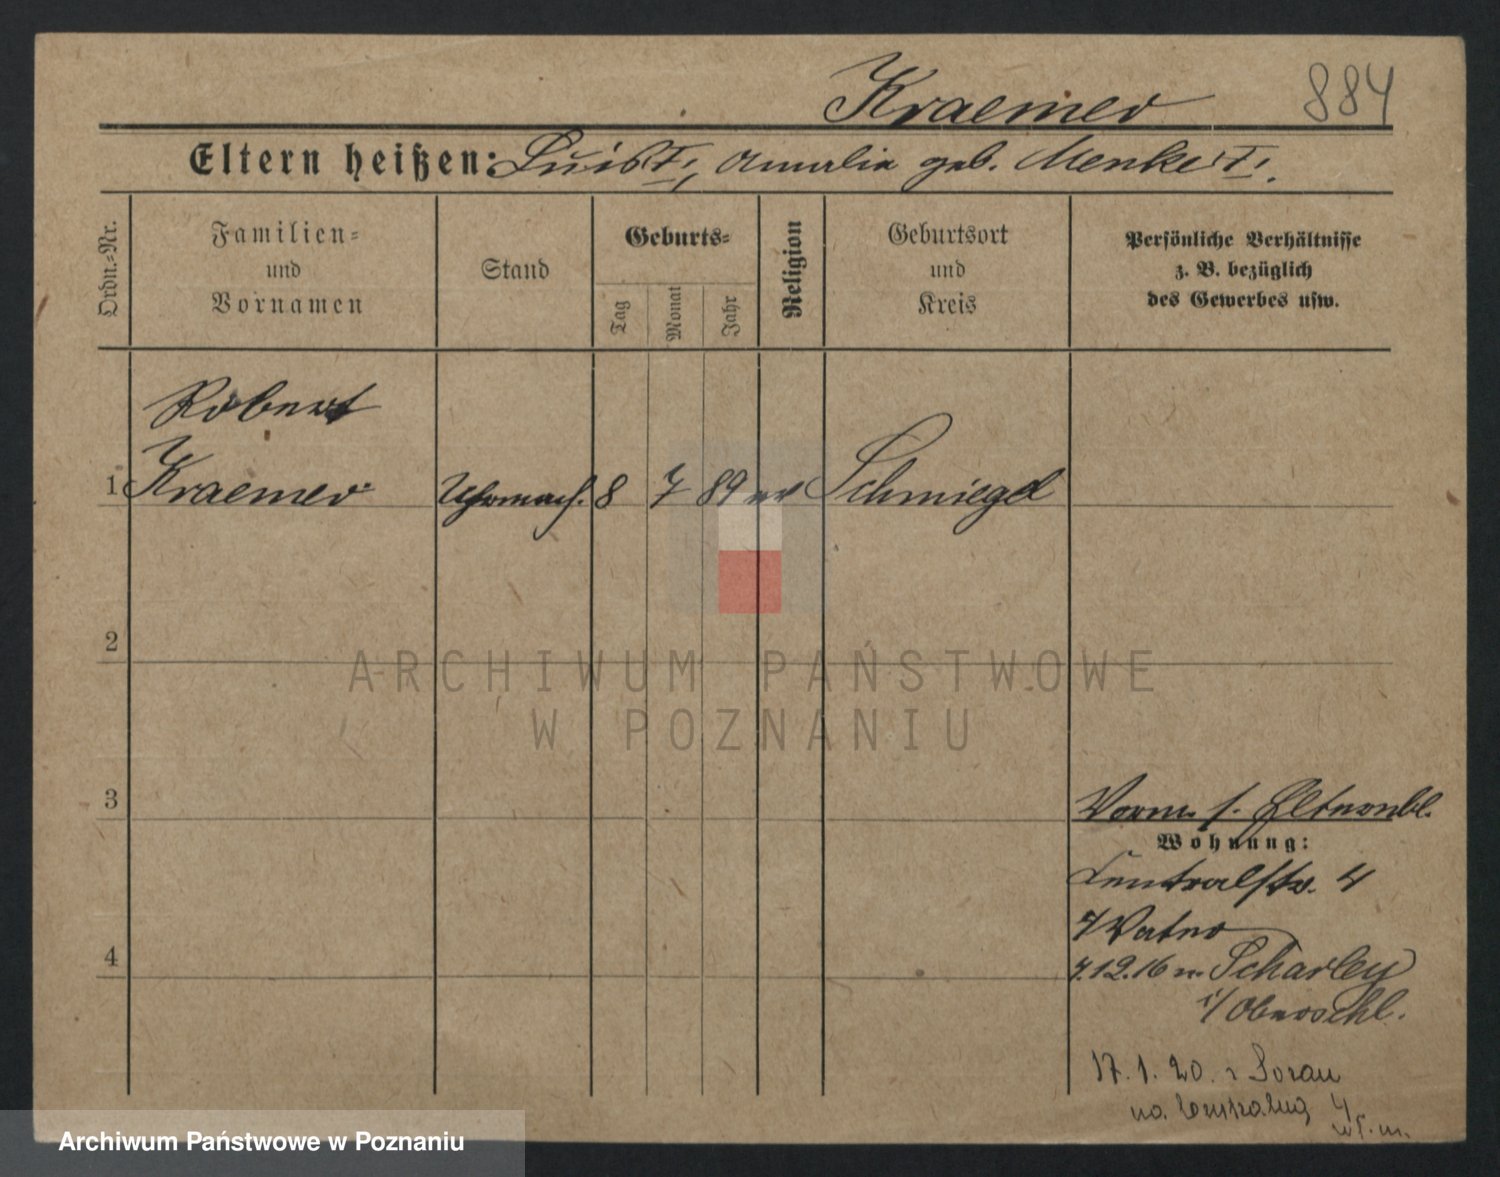 Kraemer 884
Eltern heißen: Luis †, Amalia geb. Menke †.
Ordn.-Nr.
Familien-
und
Vornamen
Stand
Geburts-
Tag
Monat
Jahr
Religion
Geburtsort
und
Kreis
Persönliche Verhältnisse
z. B. bezüglich
des Gewerbes usw.
Robert
1 Kraemer Uhrmach. 8 7 89 ev Schmiegel
2
ARCHIWUM PAŃSTWOWE
W POZNANIU
3 Vorm. s. Elternbl.
Wohnung:
Centralstr. 4
Vater
4
7.12.16 n. Scharley
i/Oberschl.
17.1.20. z Sorau
na 4
Archiwum Państwowe w Poznaniu